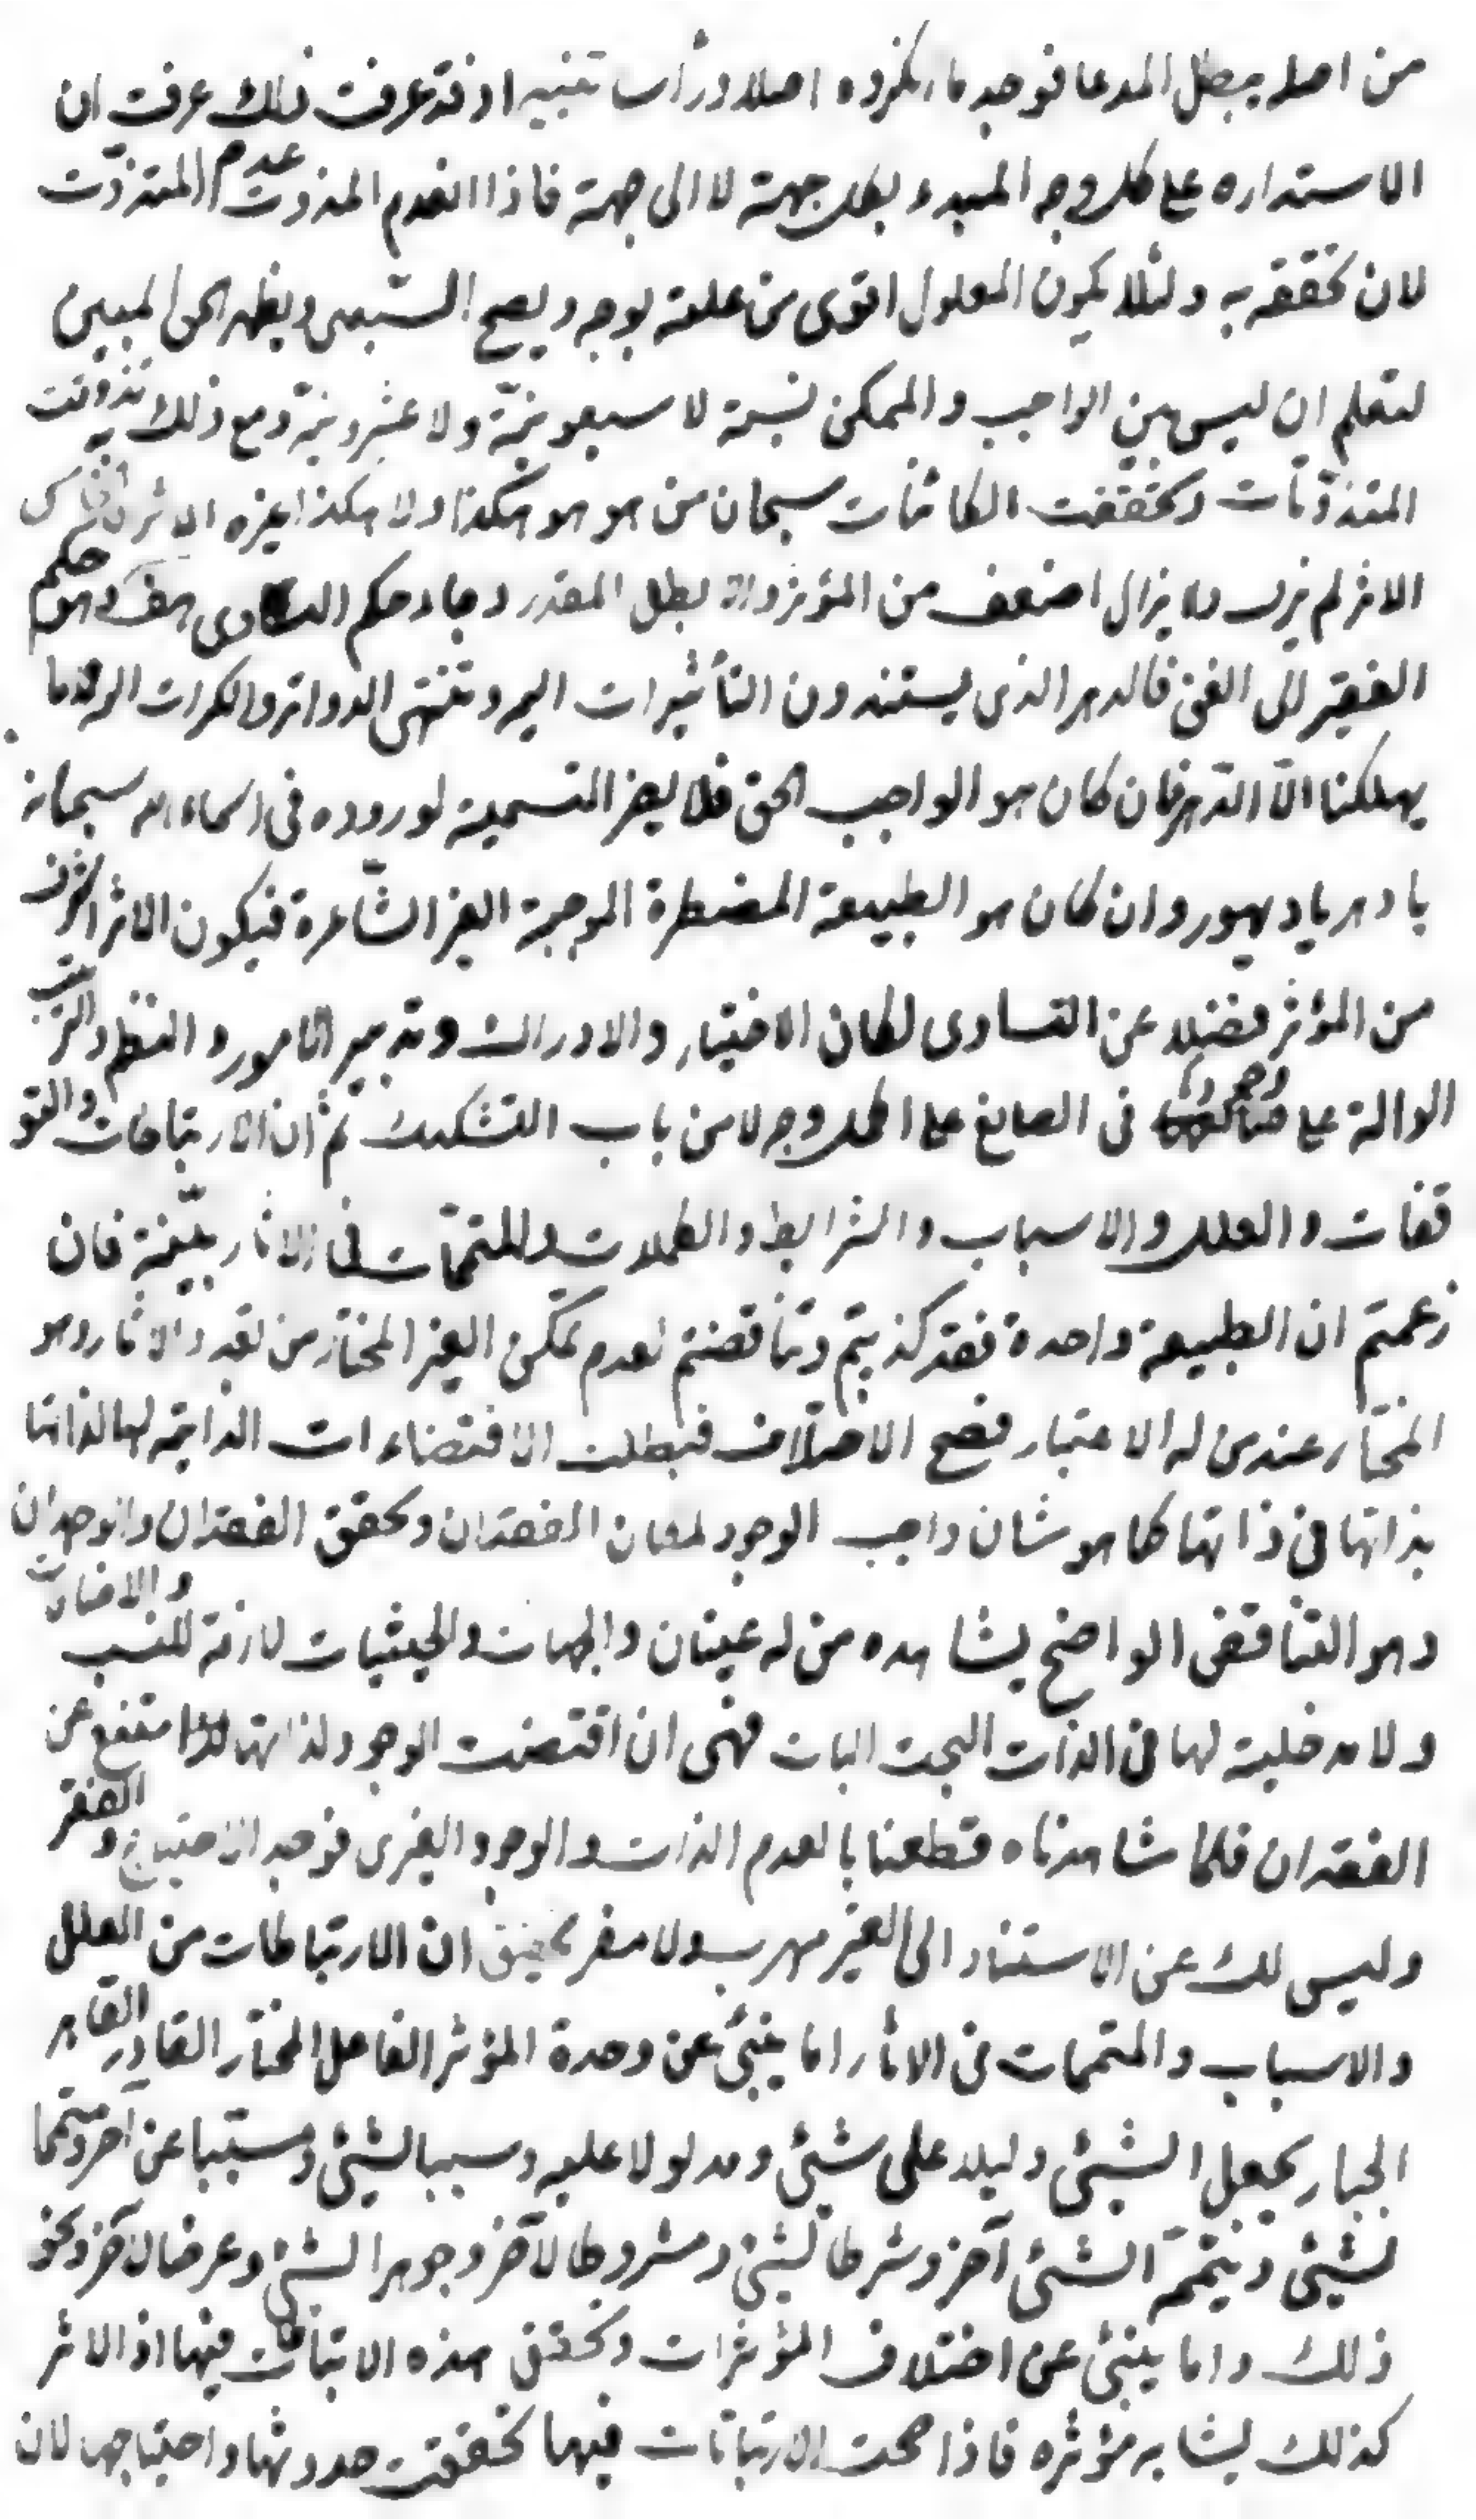 من اصله يبطل المدعا فوجد ما انكروه اصلا ورأسا تنبيه اذ قد عرفت ذلك عرفت ان
الاستداره على كل وجه المبدء بكل جهة لا الى جهة فاذا انعدم المذوت عدم المتذوّت
لان تحققه به ولئلا يكون المعلول اقوى من علته بوجه ويصح التسبيس ويظهر الحق المبين
لتعلم ان ليس بين الواجب والممكن نسبة لا سبعونيّة ولا عشرونيّة ومع ذلك به تذوتت
المتذوّتات وتحققت الكائنات سبحان من هو هو هكذا ولا هكذا غيره
الاثر لم يزل ولا يزال اضعف من المؤثر والا بطل المقدر وجاء حكم التساوى هف وهو حكم
الفقير الى الغنى فالدهر الذى يستندون التأثيرات اليه وتنتهى الدوائر والكرات
يهلكنا الّا الدّهر فان كان هو الواجب الحق فلا يضر التسمية لوروده فى اسماء الله سبحانه
يا دهر يا ديهور وان كان هو الطبيعة المضطرة الموجبة الغير الشّاعرة فيكون الاثر اشرف
من المؤثر فضلا عن التساوى لمكان الاختيار والادراك وتدبير الامور والنظم والترتيب
الدالة على وجودها فى الصانع على اكمل وجه لا من باب التشكيك ثم ان الارتباطات والتو
قفات والعلل والاسباب والشرايط والمكملات والمتممّات فى الاثار بيّنة فان
زعمتم ان الطبيعة واحدة فقد كذبتم وتناقضتم لعدم تمكن الغير المختار من تعدد الاثار وهو
المختار عند من له الاعتبار فصح الاختلاف فبطلت الاقتضاءات الذاتية لها لذاتها
بذاتها فى ذاتها كما هو شان واجب الوجود لمكان الفقدان وتحقق الفقدان والوجدان
وهو التناقض الواضح يشاهده من له عينان والجهات والحيثيات لازمة للنسب والاضافات
ولا مدخلية لها فى الذات البحت البات فهى ان اقتضت الوجود لذاتها لامتنع عن
الفقدان فلما شاهدناه قطعنا بالعدم الذات والوجود الغيرى فوجد الاحتياج والفقر
وليس لك عن الاستناد الى الغير مهرب ولا مفر تحقيق ان الارتباطات من العلل
والاسباب والمتممات فى الاثار اما ينبئ عن وحدة المؤثر الفاعل المختار القادر القاهر
الجبار يجعل الشيئ دليلا على شيئ ومدلولا عليه وسببا لشيئ ومسبّبا عن آخر ومتمما
لشيئ ويتممه الشيئ آخر وشرطا لشيئ ومشروطا لآخر وجوهرا لشيئ وعرضا لآخر ونحو
ذلك واما ينبئ عن اختلاف المؤثرات وتحقق هذه الارتباطات فيها اذ الاثر
كذلك يشابه مؤثره فاذا صحت الارتباطات فيها تحققت حدوثها واحتياجها لان